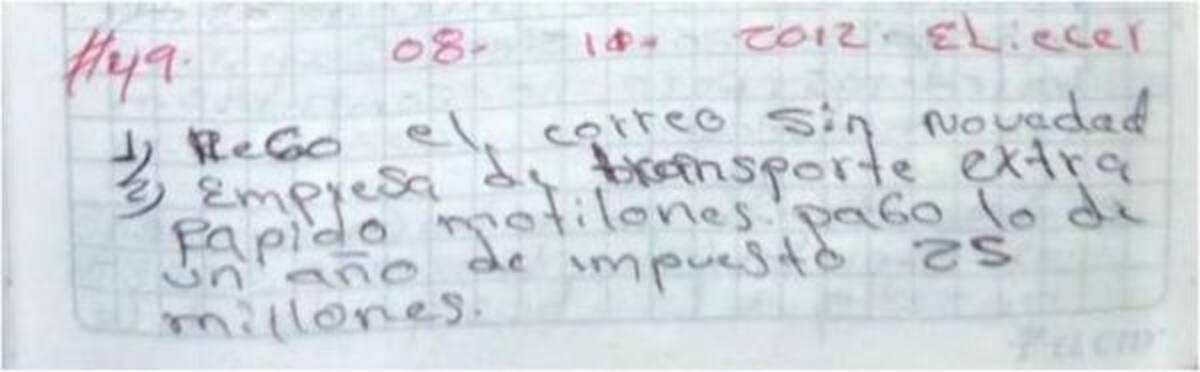 #49. 08- 10- 2012. ELiecer
1) lleGo el correo sin Novedad
2) Empresa de transporte extra
Rapido motilones. paGo lo de
un año de impuesto 25
millones.